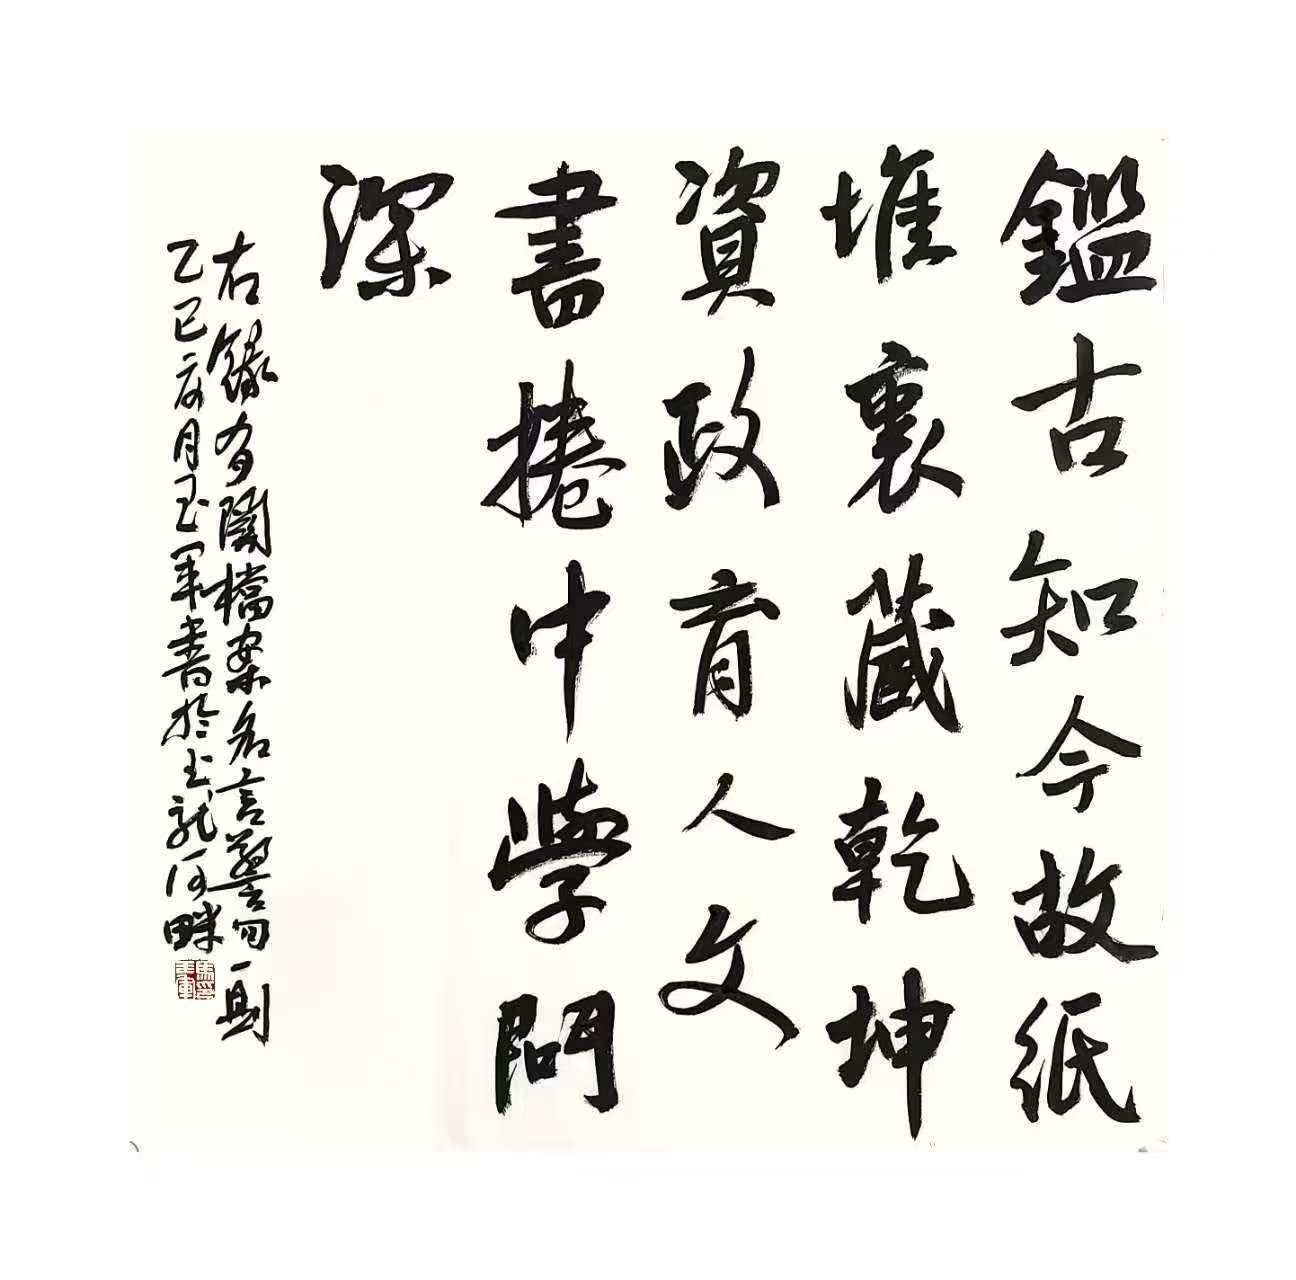 鑑古知今故紙
堆裏藏乾坤
資政育人文
書捲中學問
深
右錄有關檔案名言警句一則
乙巳亥月玉軍書於玉龍河畔